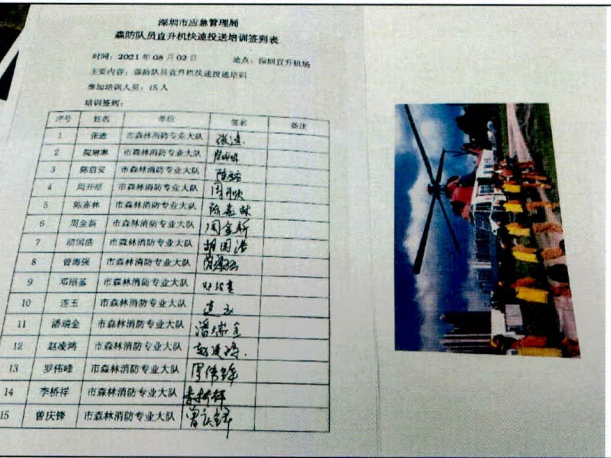 深圳市应急管理局
森防队员直升机快速投送培训签到表
时间：2021年08月02日 地点：深圳直升机场
主要内容：森防队员直升机快速投送培训
参加培训人员：15人
培训签到：
序号 姓名 单位 签名 备注
1 张进 市森林消防专业大队 张进
2 市森林消防专业大队
3 陈启安 市森林消防专业大队
4 周开顺 市森林消防专业大队
5 陈嘉林 市森林消防专业大队 陈嘉林
6 周金新 市森林消防专业大队 周金新
7 胡国浩 市森林消防专业大队 胡国浩
8 曾海强 市森林消防专业大队
9 市森林消防专业大队
10 连玉 市森林消防专业大队 连玉
11 潘瑞金 市森林消防专业大队 潘瑞金
12 赵凌鸿 市森林消防专业大队
13 罗伟峰 市森林消防专业大队
14 李桥祥 市森林消防专业大队 李桥祥
15 曾庆锋 市森林消防专业大队 曾庆锋